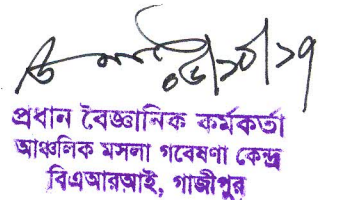 ০৬/১০/১৭
প্রধান বৈজ্ঞানিক কর্মকর্তা
আঞ্চলিক মসলা গবেষণা কেন্দ্র
বিএআরআই, গাজীপুর